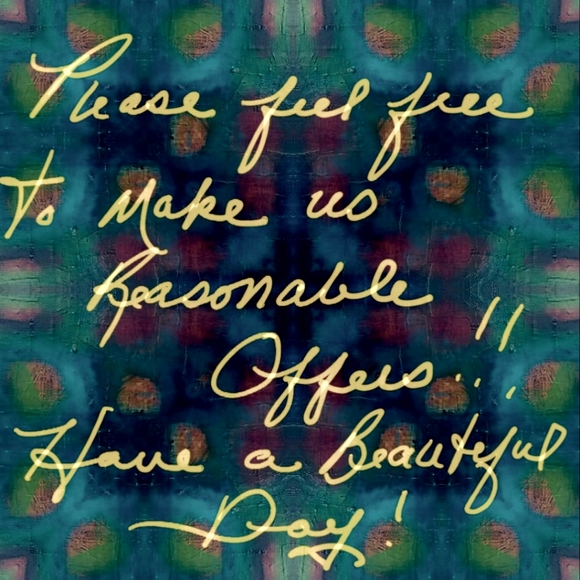 Please feel free
to Make us
Reasonable
Offers..!!
Have a Beautiful
Day!